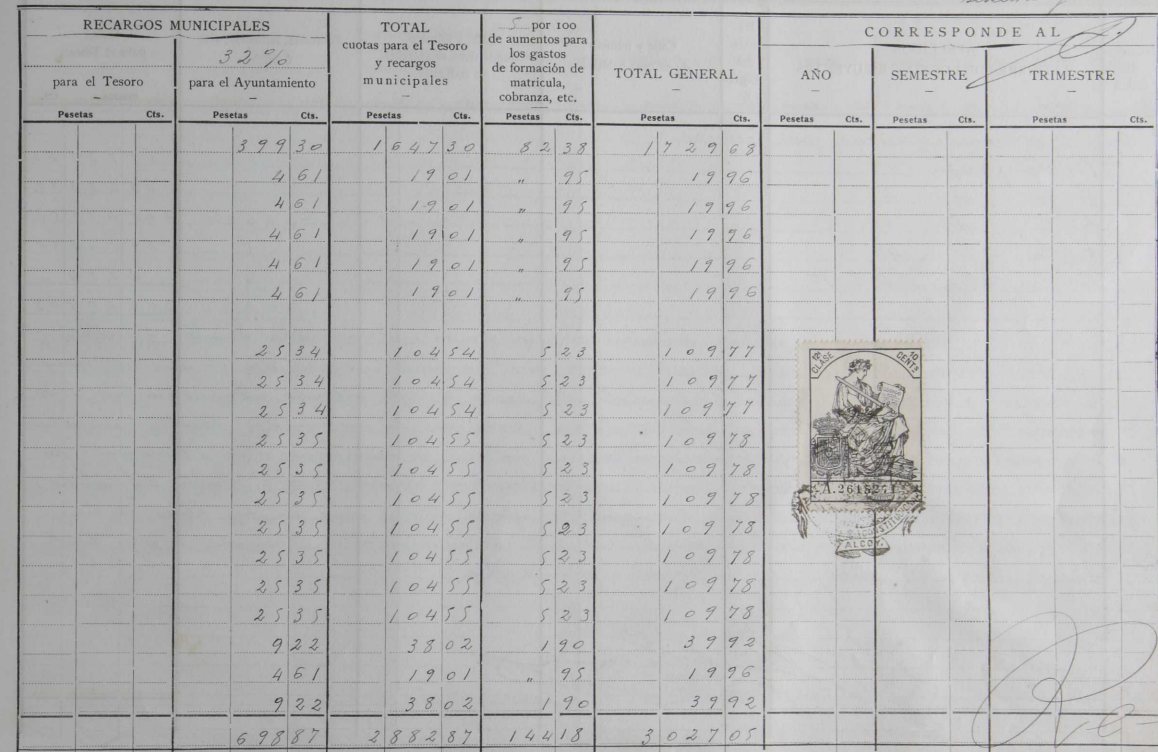 RECARGOS MUNICIPALES
32 %
para el Tesoro
para el Ayuntamiento
TOTAL
cuotas para el Tesoro
y recargos
municipales
5 por 100
de aumentos para
los gastos
de formación de
matrícula,
cobranza, etc.
TOTAL GENERAL
CORRESPONDE AL
AÑO SEMESTRE TRIMESTRE
Pesetas Cts. Pesetas Cts. Pesetas Cts. Pesetas Cts. Pesetas Cts. Pesetas Cts. Pesetas Cts. Pesetas Cts.
399 30 1647 30 82 38 1729 68
4 61 19 01 " 95 19 96
4 61 19 01 " 95 19 96
4 61 19 01 " 95 19 96
4 61 19 01 " 95 19 96
4 61 19 01 " 95 19 96
25 34 104 54 5 23 109 77
25 34 104 54 5 23 109 77
25 34 104 54 5 23 109 77
25 35 104 55 5 23 109 78
25 35 104 55 5 23 109 78
25 35 104 55 5 23 109 78
25 35 104 55 5 23 109 78
25 35 104 55 5 23 109 78
25 35 104 55 5 23 109 78
25 35 104 55 5 23 109 78
9 22 38 02 1 90 39 92
4 61 19 01 " 95 19 96
9 22 38 02 1 90 39 92
698 87 2882 87 144 18 3027 05
12ª CLASE 10 CENTS
ALCOY.